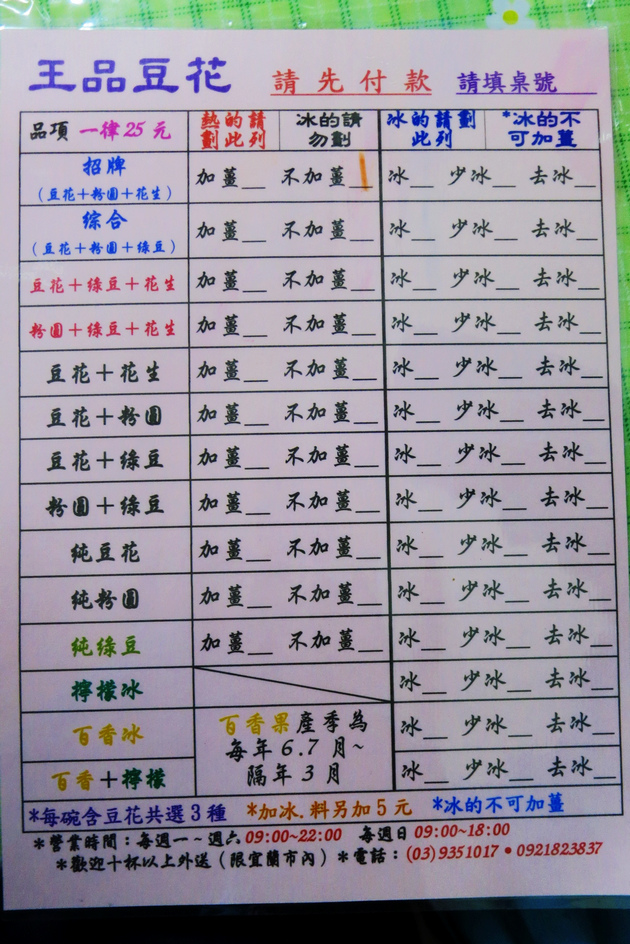 王品豆花 請先付款 請填桌號
品項 一律25元 熱的請劃此列 冰的請勿劃 冰的請劃此列 *冰的不可加薑
招牌
(豆花+粉圓+花生) 加薑__ 不加薑__ 冰__ 少冰__ 去冰__
綜合
(豆花+粉圓+綠豆) 加薑__ 不加薑__ 冰__ 少冰__ 去冰__
豆花+綠豆+花生 加薑__ 不加薑__ 冰__ 少冰__ 去冰__
粉圓+綠豆+花生 加薑__ 不加薑__ 冰__ 少冰__ 去冰__
豆花+花生 加薑__ 不加薑__ 冰__ 少冰__ 去冰__
豆花+粉圓 加薑__ 不加薑__ 冰__ 少冰__ 去冰__
豆花+綠豆 加薑__ 不加薑__ 冰__ 少冰__ 去冰__
粉圓+綠豆 加薑__ 不加薑__ 冰__ 少冰__ 去冰__
純豆花 加薑__ 不加薑__ 冰__ 少冰__ 去冰__
純粉圓 加薑__ 不加薑__ 冰__ 少冰__ 去冰__
純綠豆 加薑__ 不加薑__ 冰__ 少冰__ 去冰__
檸檬冰 冰__ 少冰__ 去冰__
百香冰 冰__ 少冰__ 去冰__
百香+檸檬 冰__ 少冰__ 去冰__
百香果產季為
每年6.7月~
隔年3月
*每碗含豆花共選3種 *加冰.料另加5元 *冰的不可加薑
*營業時間：每週一~週六09:00~22:00 每週日09:00~18:00
*歡迎十杯以上外送(限宜蘭市內)*電話：(03)9351017•0921823837